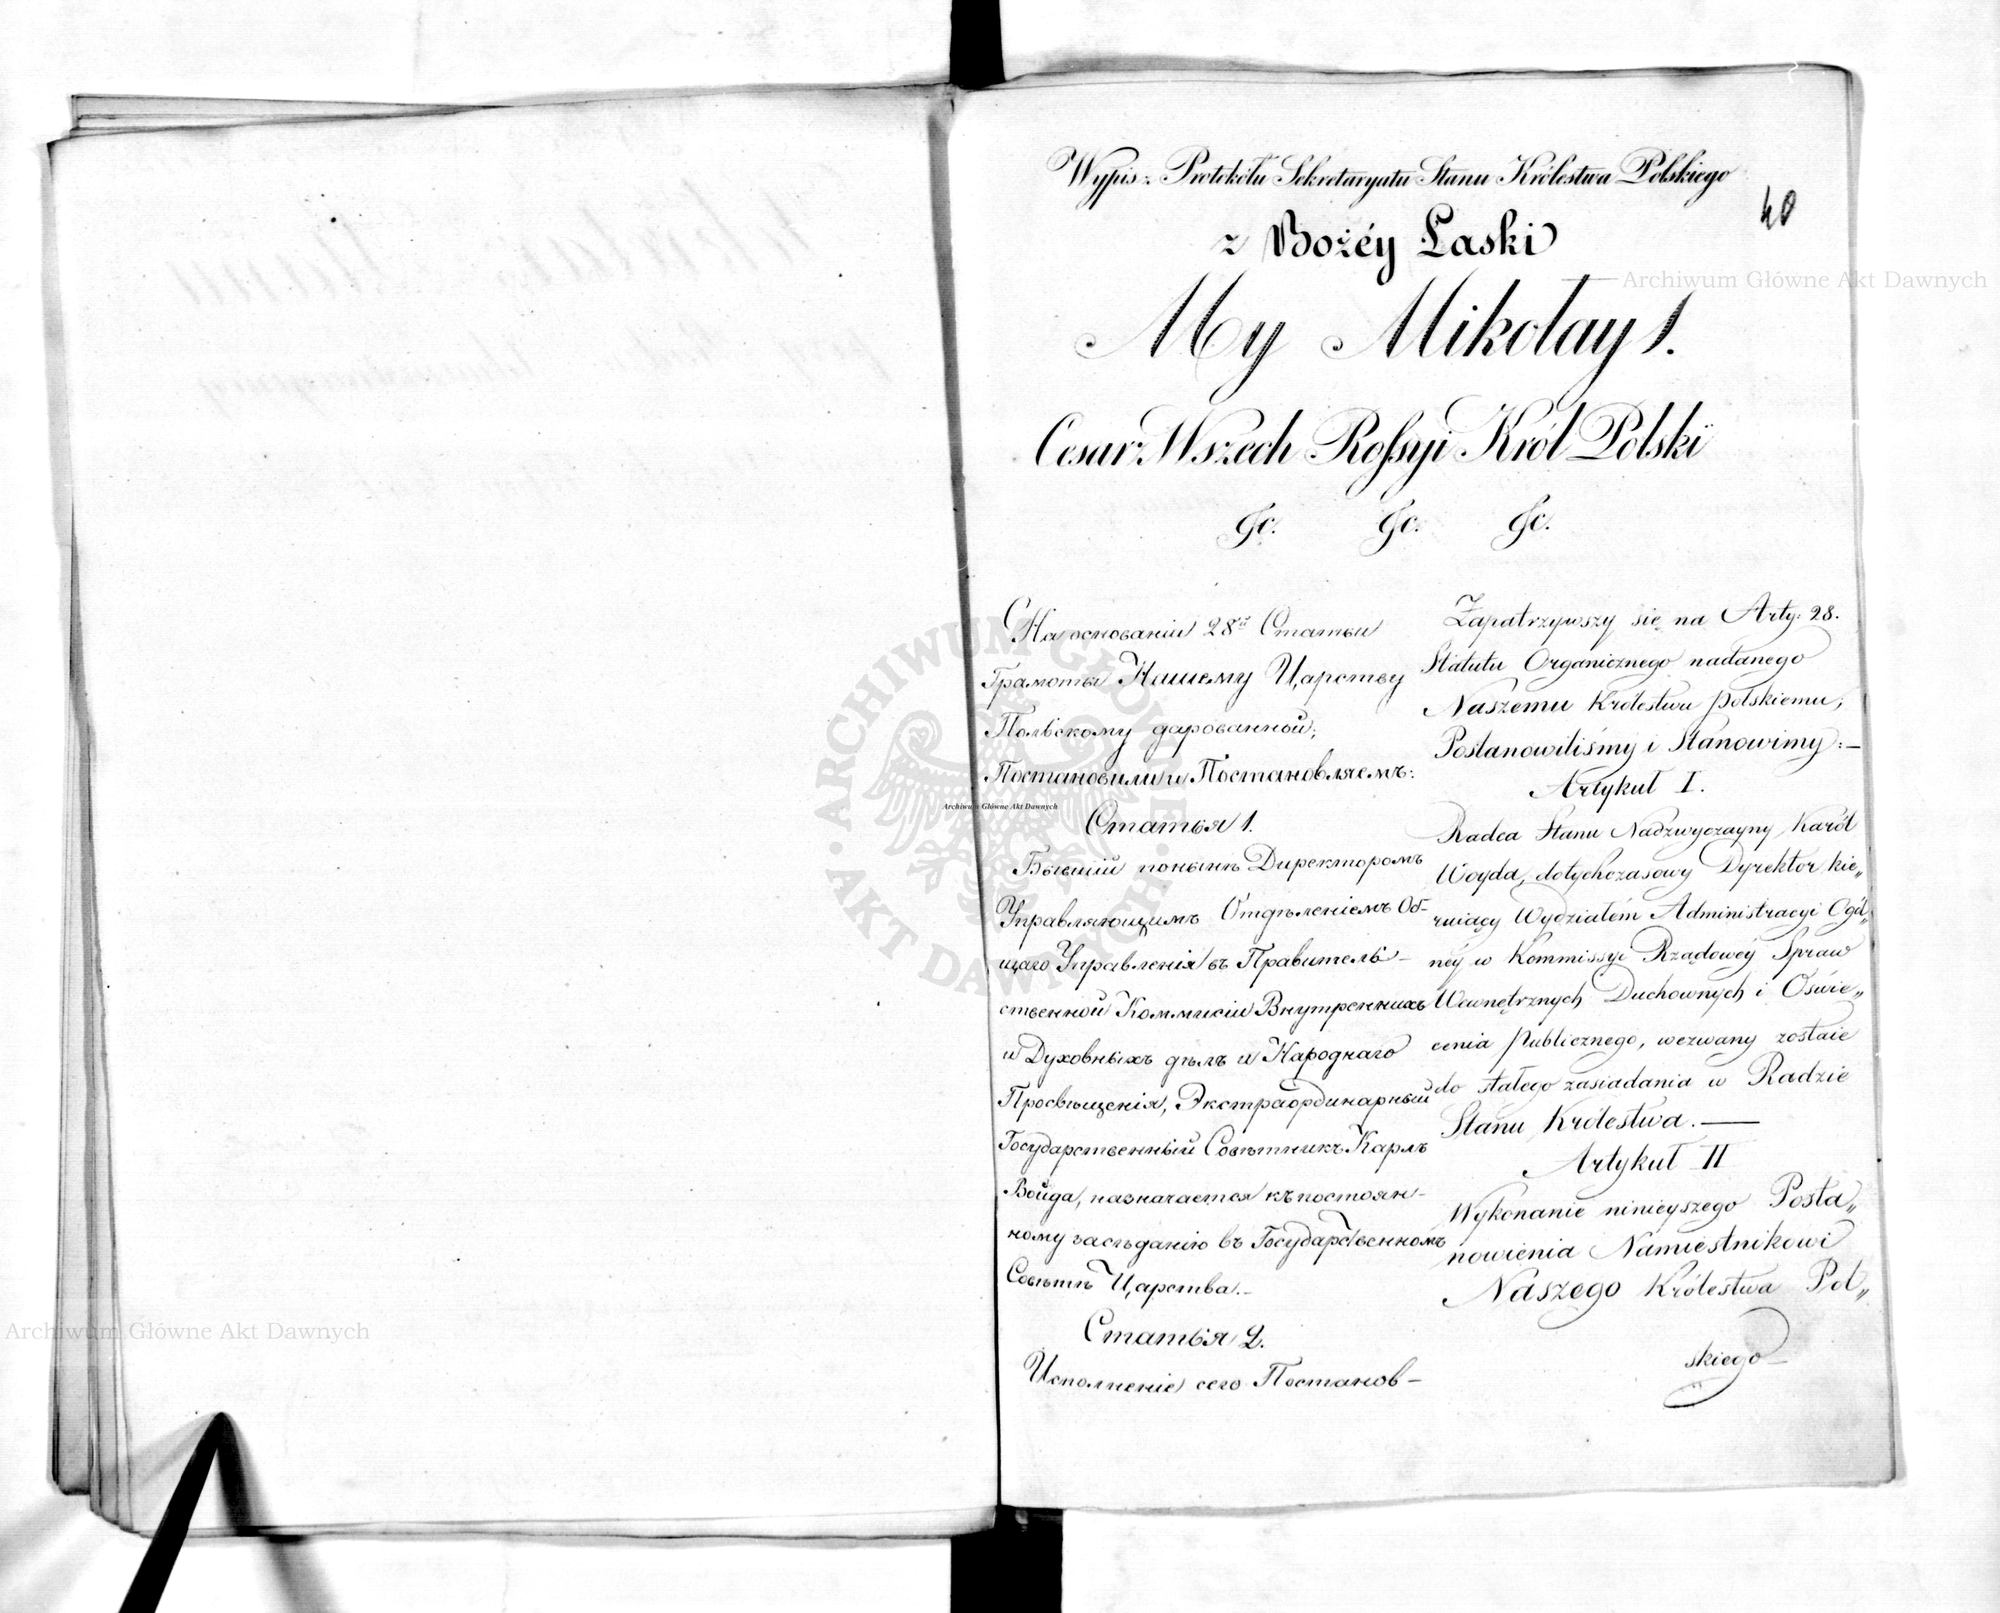 Wypis z Protokółu Sekretaryatu Stanu Królestwa Polskiego
40
z Bożéy Łaski
My Mikołay 1.
Cesarz Wszech Rossyi Król Polski
&c. &c. &c.
На основаніи 28й Статьи
Грамоты Нашему Царству
Польскому дарованной;
Постановили и Постановляемъ:
Статья 1.
Бывшій понынѣ Директоромъ
Управляющимъ Отдѣленіемъ Об-
щаго Управленія въ Правитель-
ственной Коммисіи Внутреннихъ
и Духовныхъ дѣлъ и Народнаго
Просвѣщенія, Экстраординарный
Государственный Совѣтникъ Карлъ
Войда, назначается къ постоян-
ному засѣданію въ Государственномъ
Совѣтѣ Царства.-
Статья 2.
Исполненіе сего Постанов-
Zapatrzywszy się na Arty: 28.
Statutu Organicznego nadanego
Naszemu Królestwu Polskiemu;
Postanowiliśmy i Stanowimy:-
Artykuł I.
Radca Stanu Nadzwyczayny Karól
Woyda, dotychczasowy Dyrektor kie„
ruiący Wydziałem Administracyi Ogól„
néy w Kommissyi Rządowéy Spraw
Wewnętrznych Duchownych i Oświe„
cenia Publicznego, wezwany zostaie
do stałego zasiadania w Radzie
Stanu Królestwa.-
Artykuł II
Wykonanie ninieyszego Posta„
nowienia Namiestnikowi
Naszego Królestwa Pol„
skiego
Archiwum Główne Akt Dawnych
Archiwum Główne Akt Dawnych
Archiwum Główne Akt Dawnych
ARCHIWUM GŁÓWNE AKT DAWNYCH